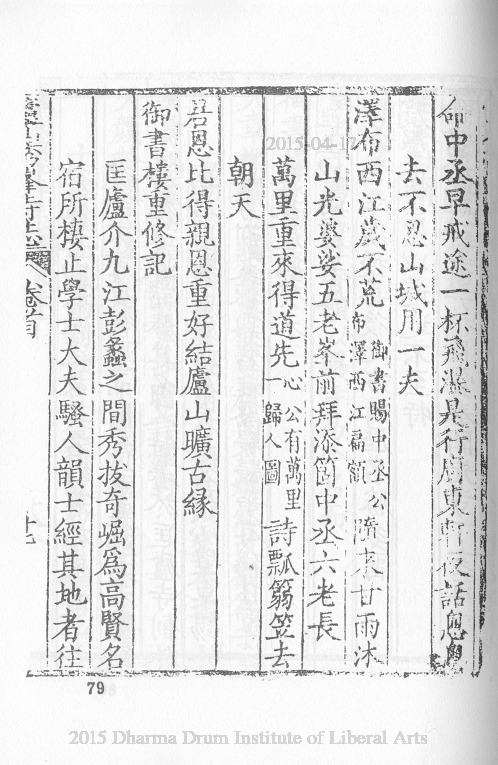 命中丞早戒途一杯飛瀑是行廚東軒夜話怱怱
去不忍山城用一夫
澤布西江歲不荒御書賜中丞公布澤西江扁額隨來甘雨沐
山光婆娑五老峯前拜添箇中丞六老長
萬里重來得道先公有萬里一心歸人圖詩瓢篛笠去
朝天
君恩比得親恩重好結廬山曠古緣
御書樓重修記
匡廬介九江彭蠡之間秀拔奇崛爲高賢名
宿所棲止學士大夫騷人韻士經其地者往
廬山秀峯寺志 卷首
十七
79
2015-04-17
2015 Dharma Drum Institute of Liberal Arts